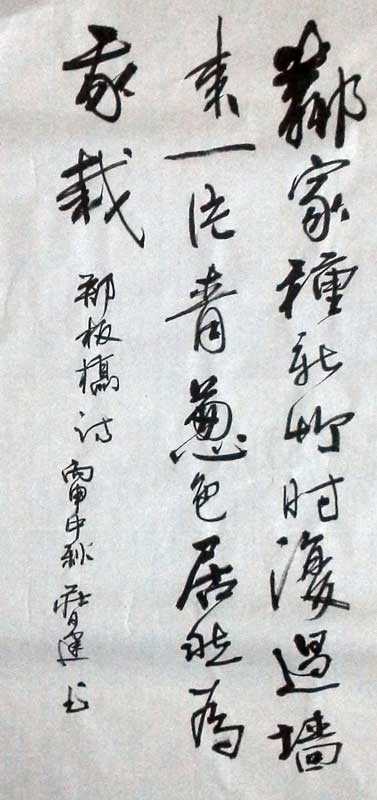 鄰家種新竹时復過墙
来一片青蔥色居然為
我栽
鄭板橋诗 丙申中秋 建书